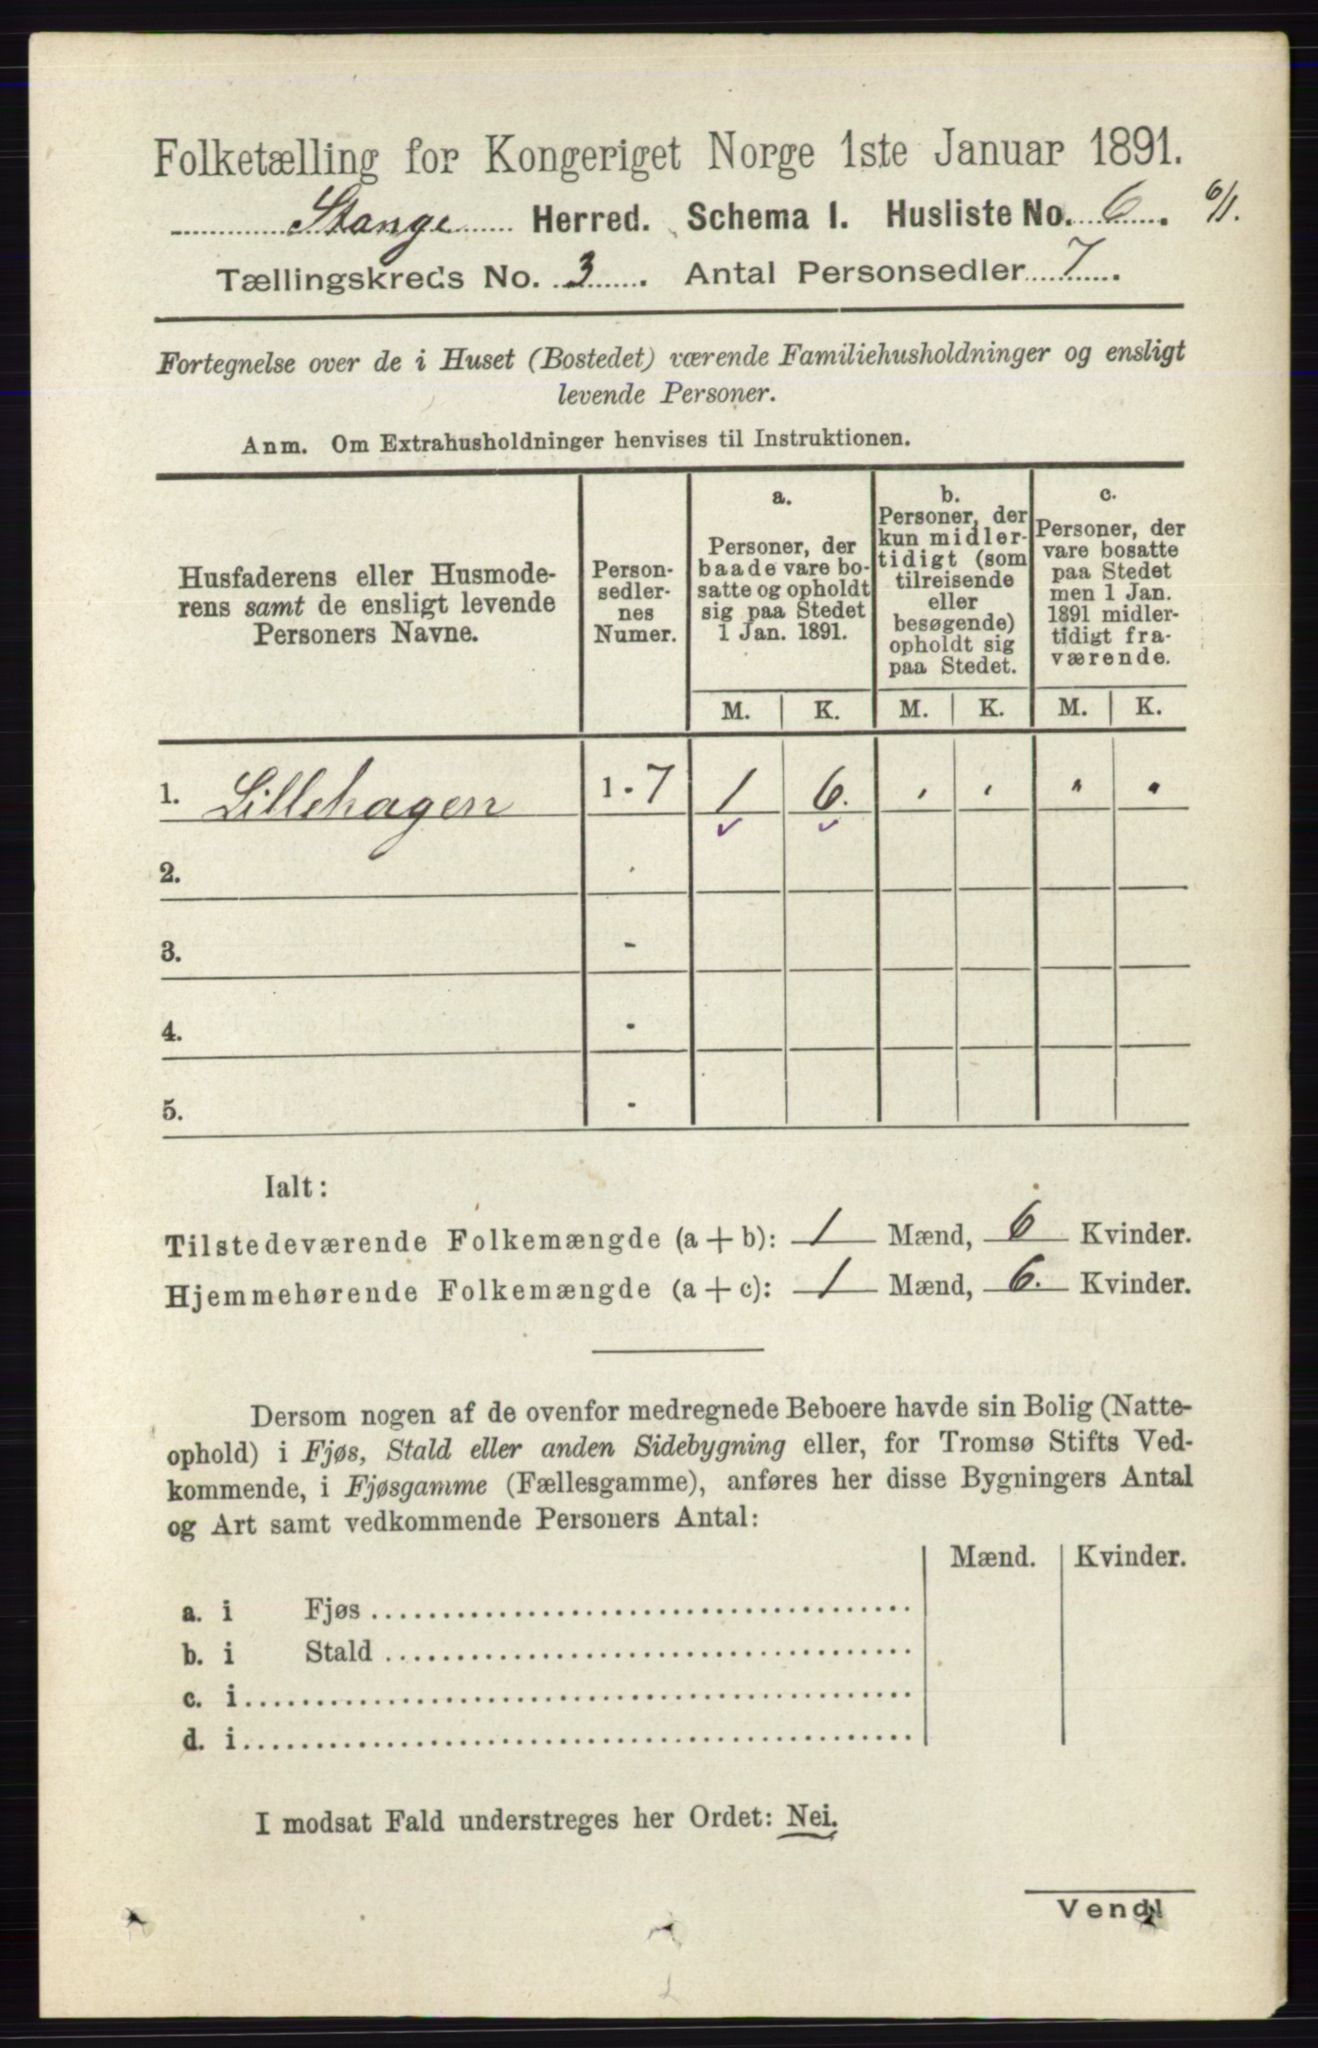 Folketælling for Kongeriget Norge 1ste Januar 1891.
Stange Herred. Schema 1. Husliste No. 6. 6/1.
Tællingskreds No. 3. Antal Personsedler 7.
Fortegnelse over de i Huset (Bostedet) værende Familiehusholdninger og ensligt
levende Personer.
Anm. Om Extrahusholdninger henvises til Instruktionen.
Husfaderens eller Husmode-
rens samt de ensligt levende
Personers Navne.
Person-
sedler-
nes
Numer.
a.
Personer, der
baade vare bo-
satte og opholdt
sig paa Stedet
1 Jan. 1891.
b.
Personer, der
kun midler-
tidigt (som
tilreisende
eller
besøgende)
opholdt sig
paa Stedet.
c.
Personer, der
vare bosatte
paa Stedet
men 1 Jan.
1891 midler-
tidigt fra-
værende.
M. K. M. K. M. K.
1. Lillehagen 1-7 1 6. . . . .
2.
3. -
4. -
5. -
Ialt:
Tilstedeværende Folkemængde (a + b): 1 Mænd, 6 Kvinder.
Hjemmehørende Folkemængde (a + c): 1 Mænd, 6. Kvinder.
Dersom nogen af de ovenfor medregnede Beboere havde sin Bolig (Natte-
ophold) i Fjøs, Stald eller anden Sidebygning eller, for Tromsø Stifts Ved-
kommende, i Fjøsgamme (Fællesgamme), anføres her disse Bygningers Antal
og Art samt vedkommende Personers Antal:
Mænd. Kvinder.
a. i Fjøs
b. i Stald
c. i
d. i
I modsat Fald understreges her Ordet: Nei.
Vend!